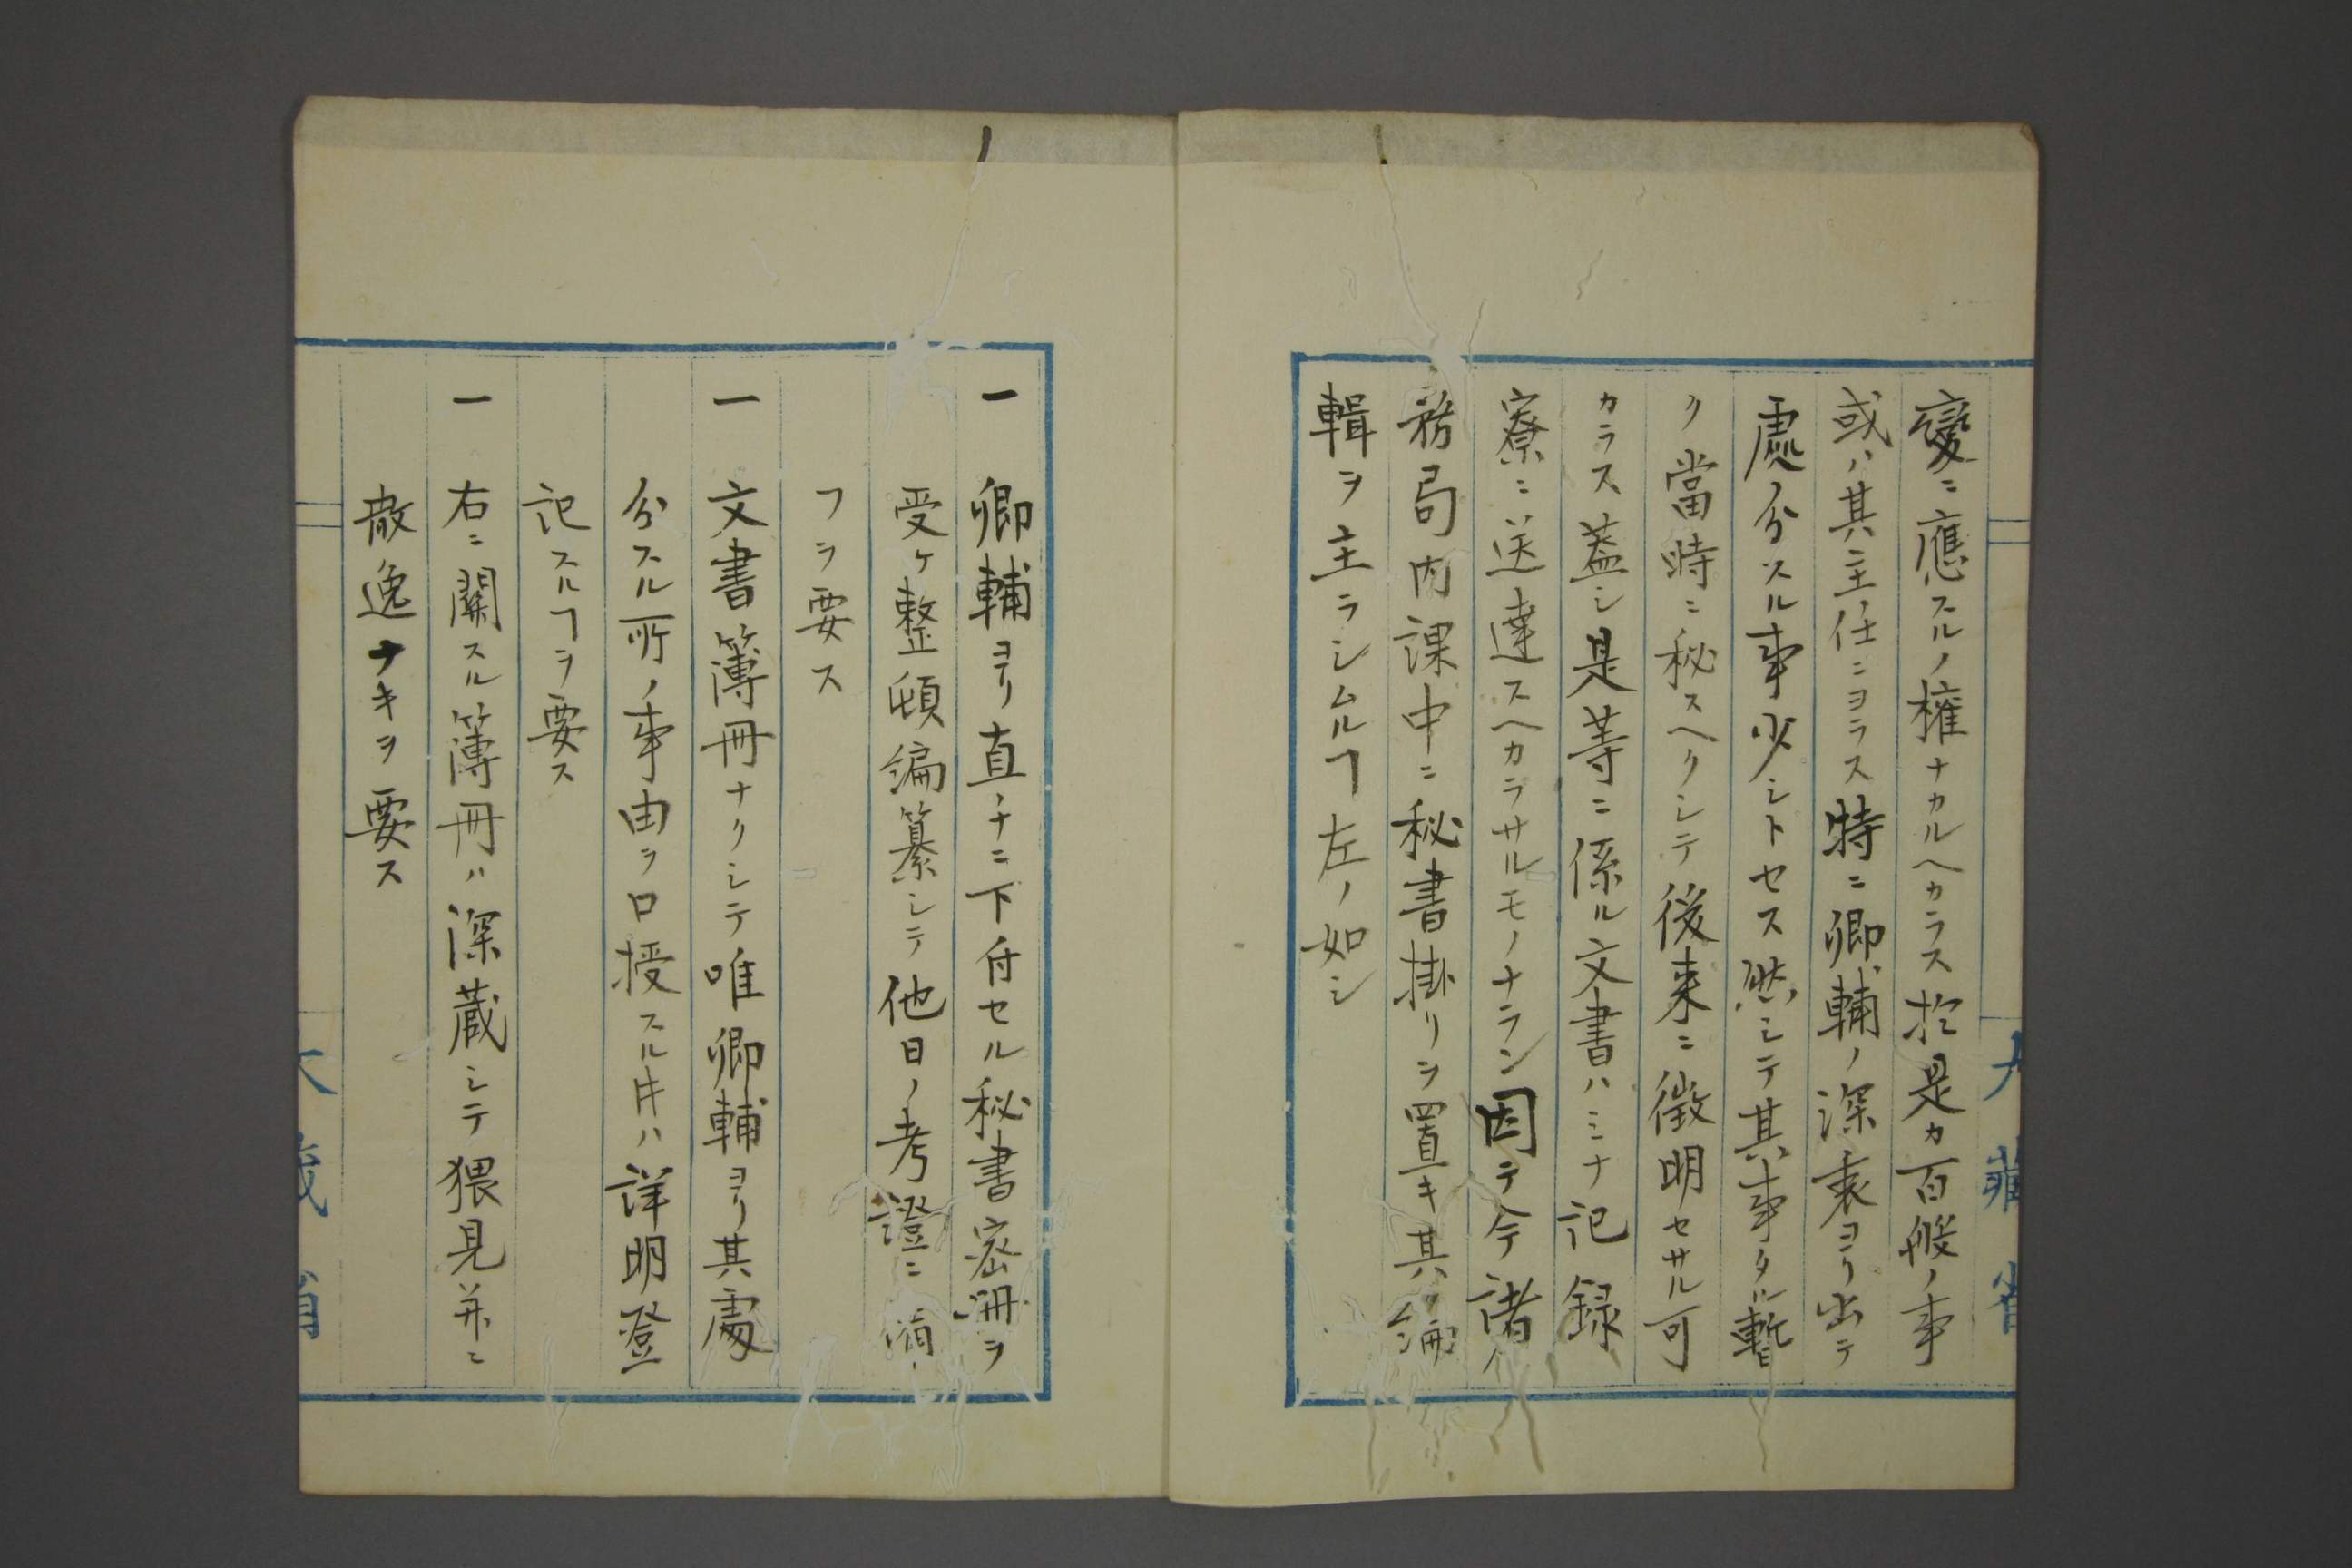 變ニ應スルノ權ナカルヘカラス於是カ百般ノ事
或ハ其主任ニヨラス特ニ卿輔ノ深衷ヨリ出テ
處分スル事少シトセス然シテ其事タル暫
ク當時ニ秘スヘクシテ後来ニ徴明セサル可
カラス蓋シ是等ニ係ル文書ハミナ記録
寮ニ送達スヘカラサルモノナラン因テ今諸
務局内課中ニ秘書掛リヲ置キ其編
輯ヲ主ラシムルヿ左ノ如シ
一 卿輔ヨリ直チニ下付セル秘書密冊ヲ
受ケ整頓編纂シテ他日ノ考證ニ備
フヲ要ス
一 文書簿冊ナクシテ唯卿輔ヨリ其處
分スル所ノ事由ヲ口授スル片ハ詳明登
記スルヿヲ要ス
一 右ニ關スル簿冊ハ深蔵シテ猥見并ニ
散逸ナキヲ要ス
大藏省